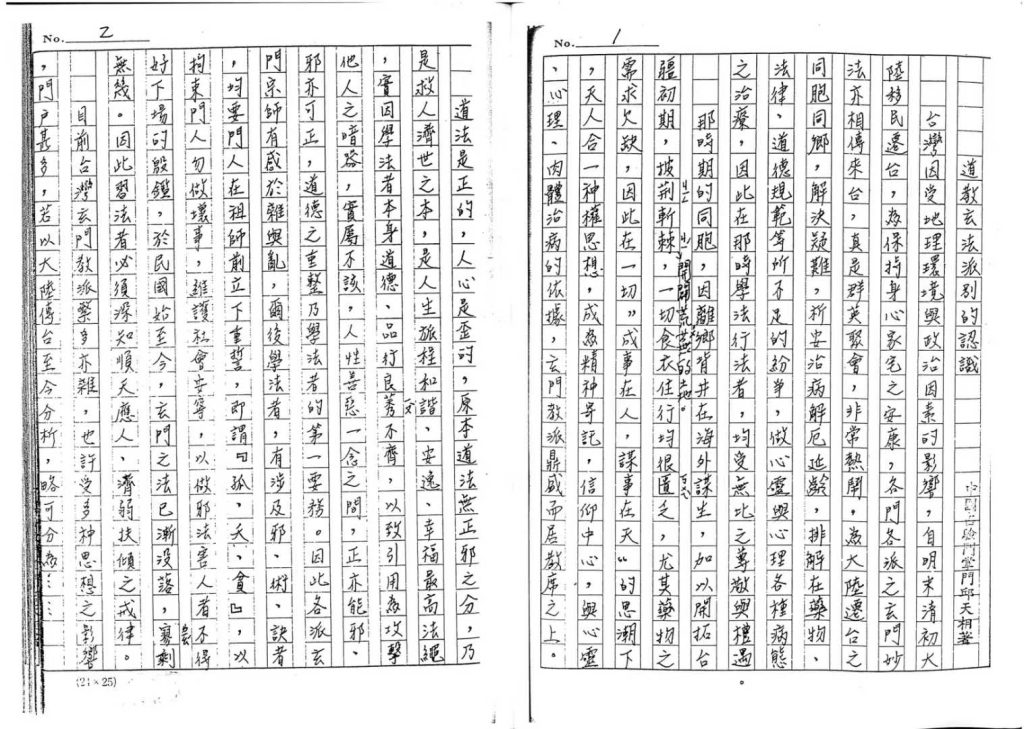 No. 1
道教玄法派別的認識
掌門邱天相著
台灣因受地理環境與政治因素的影響,自明末清初大
陸移民遷台,為保持身心家宅之安康,各門各派之玄門妙
法亦相傳來台,真是群英聚會,非常熱鬧,為大陸遷台之
同胞同鄉,解決疑難,祈安治病解厄延齡,排解在藥物、
法律、道德規範等所不足的紛爭,做心靈與心理各種病態
之治療,因此在那時學法行法者,均受無比之尊敬與禮遇
。
那時期的同胞,因離鄉背井在海外謀生,加以開拓台
疆初期,披荊斬棘,開闢荒蕪的土地。一切食衣住行均很匱乏,尤其藥物之
需求欠缺,因此在一切〝成事在人,謀事在天〞的思潮下
,天人合一神權思想,成為精神寄託,信仰中心,與心靈
、心理、肉體治病的依據,玄門教派鼎盛而居教席之上。
No. 2
道法是正的,人心是歪的,原本道法無正邪之分,乃
是救人濟世之本,是人生旅程和諧、安逸、幸福最高法繩
,實因學法者本身道德、品行良莠不齊,以致引用為攻擊
他人之暗器,實屬不該,人性善惡一念之間,正亦能邪、
邪亦可正,道德之重整乃學法者的第一要務。因此各派玄
門宗師有感於雜與亂,爾後學法者,有涉及邪、術、訣者
,均要門人在祖師前立下重誓,即謂『孤、夭、貧』,以
拘束門人勿做壞事,維護社會安寧,以做邪法害人者不得
好下場的殷鑑,於民國始至今,玄門之法已漸沒落,寥剩
無幾。因此習法者必須深知順天應人、濟弱扶傾之戒律。
目前台灣玄門教派繁多亦雜,也許受多神思想之影響
,門戶甚多,若以大陸傳台至今分析,略可分為……
(21×25)